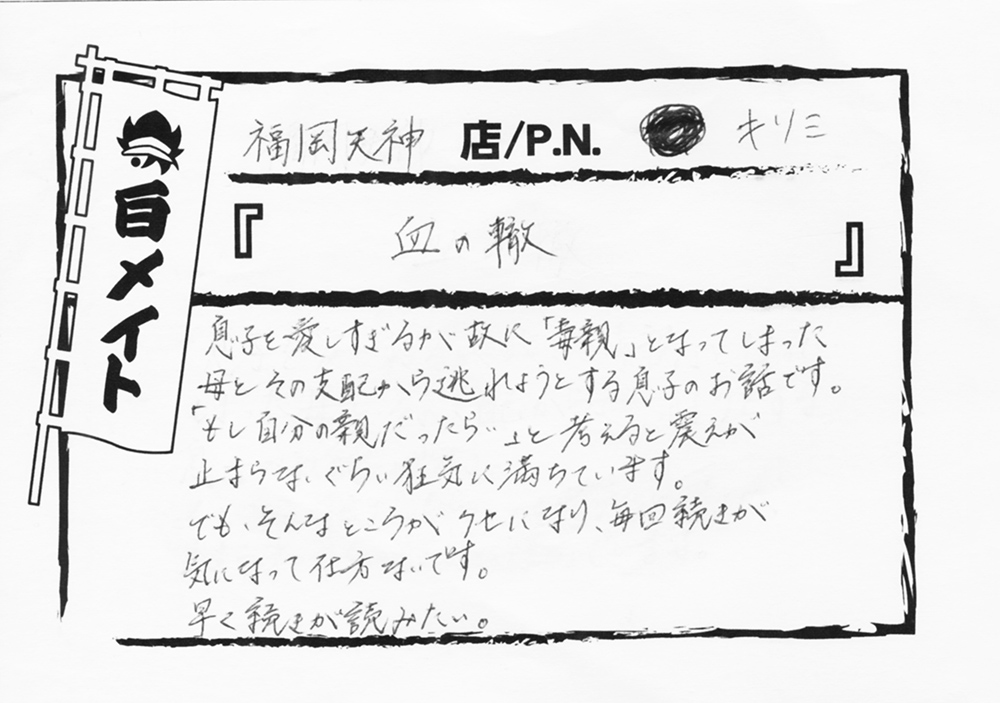 福岡天神 店/P.N. キリミ
『血の轍』
百メイト
息子を愛しすぎるが故に「毒親」となってしまった
母とその支配から逃れようとする息子のお話です。
「もし自分の親だったら…」と考えると震えが
止まらないぐらい狂気に満ちています。
でも、そんなところがクセになり、毎回続きが
気になって仕方ないです。
早く続きが読みたい。